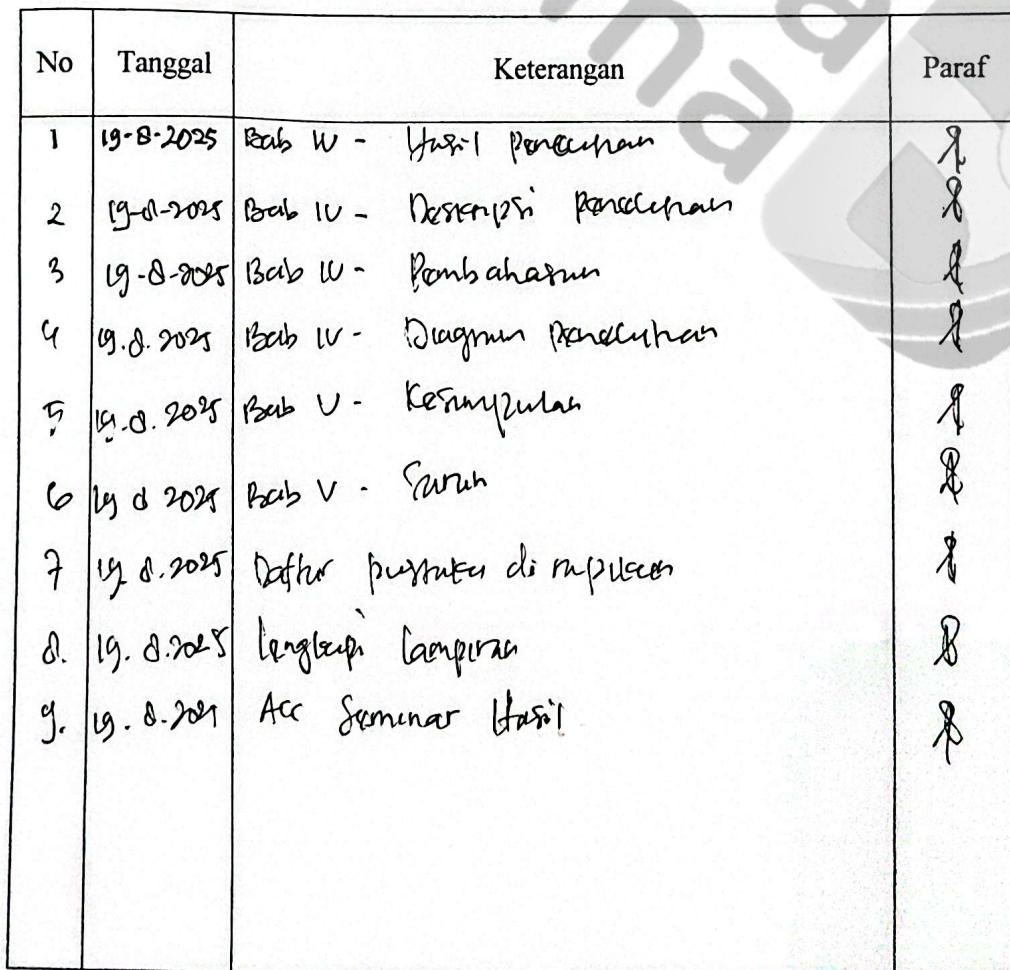 No Tanggal Keterangan Paraf
1 19-8-2025 Bab IV - Hasil Penelitian
2 19-8-2025 Bab IV - Deskripsi Penelitian
3 19-8-2025 Bab IV - Pembahasan
4 19.8.2025 Bab IV - Diagram Penelitian
5 19.8.2025 Bab V - Kesimpulan
6 19 8 2025 Bab V - Saran
7 19.8.2025 Daftar pustaka di rapikan
8. 19.8.2025 Lengkapi Lampiran
9. 19.8.2025 Acc Seminar Hasil